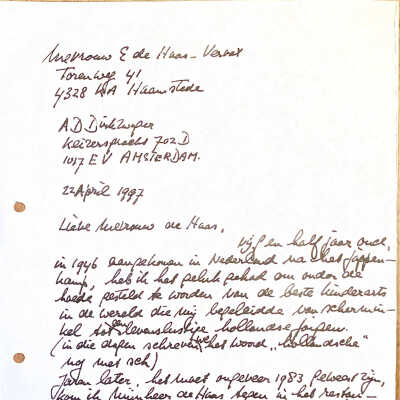 Mevrouw E de Haas-Vervet
Torenweg 41
4328 HA Haamstede
A D Dirkzwager
Keizersgracht 702 D
1017 EV AMSTERDAM.
22 April 1997
Lieve Mevrouw de Haas,
Vijf en half jaar oud,
in 1946 aangekomen in Nederland na het Jappen-
kamp, heb ik het geluk gehad om onder de
hoede gesteld te worden van de beste kinderarts
in de wereld die mij begeleidde van scharmin-
kel tot een levenslustige hollandse jongen.
(in die dagen schreven we het woord "hollandsche"
nog met sch)
Jaren later, het moet ongeveer 1983 geweest zijn,
kom ik Mijnheer de Haas tegen in het restau-